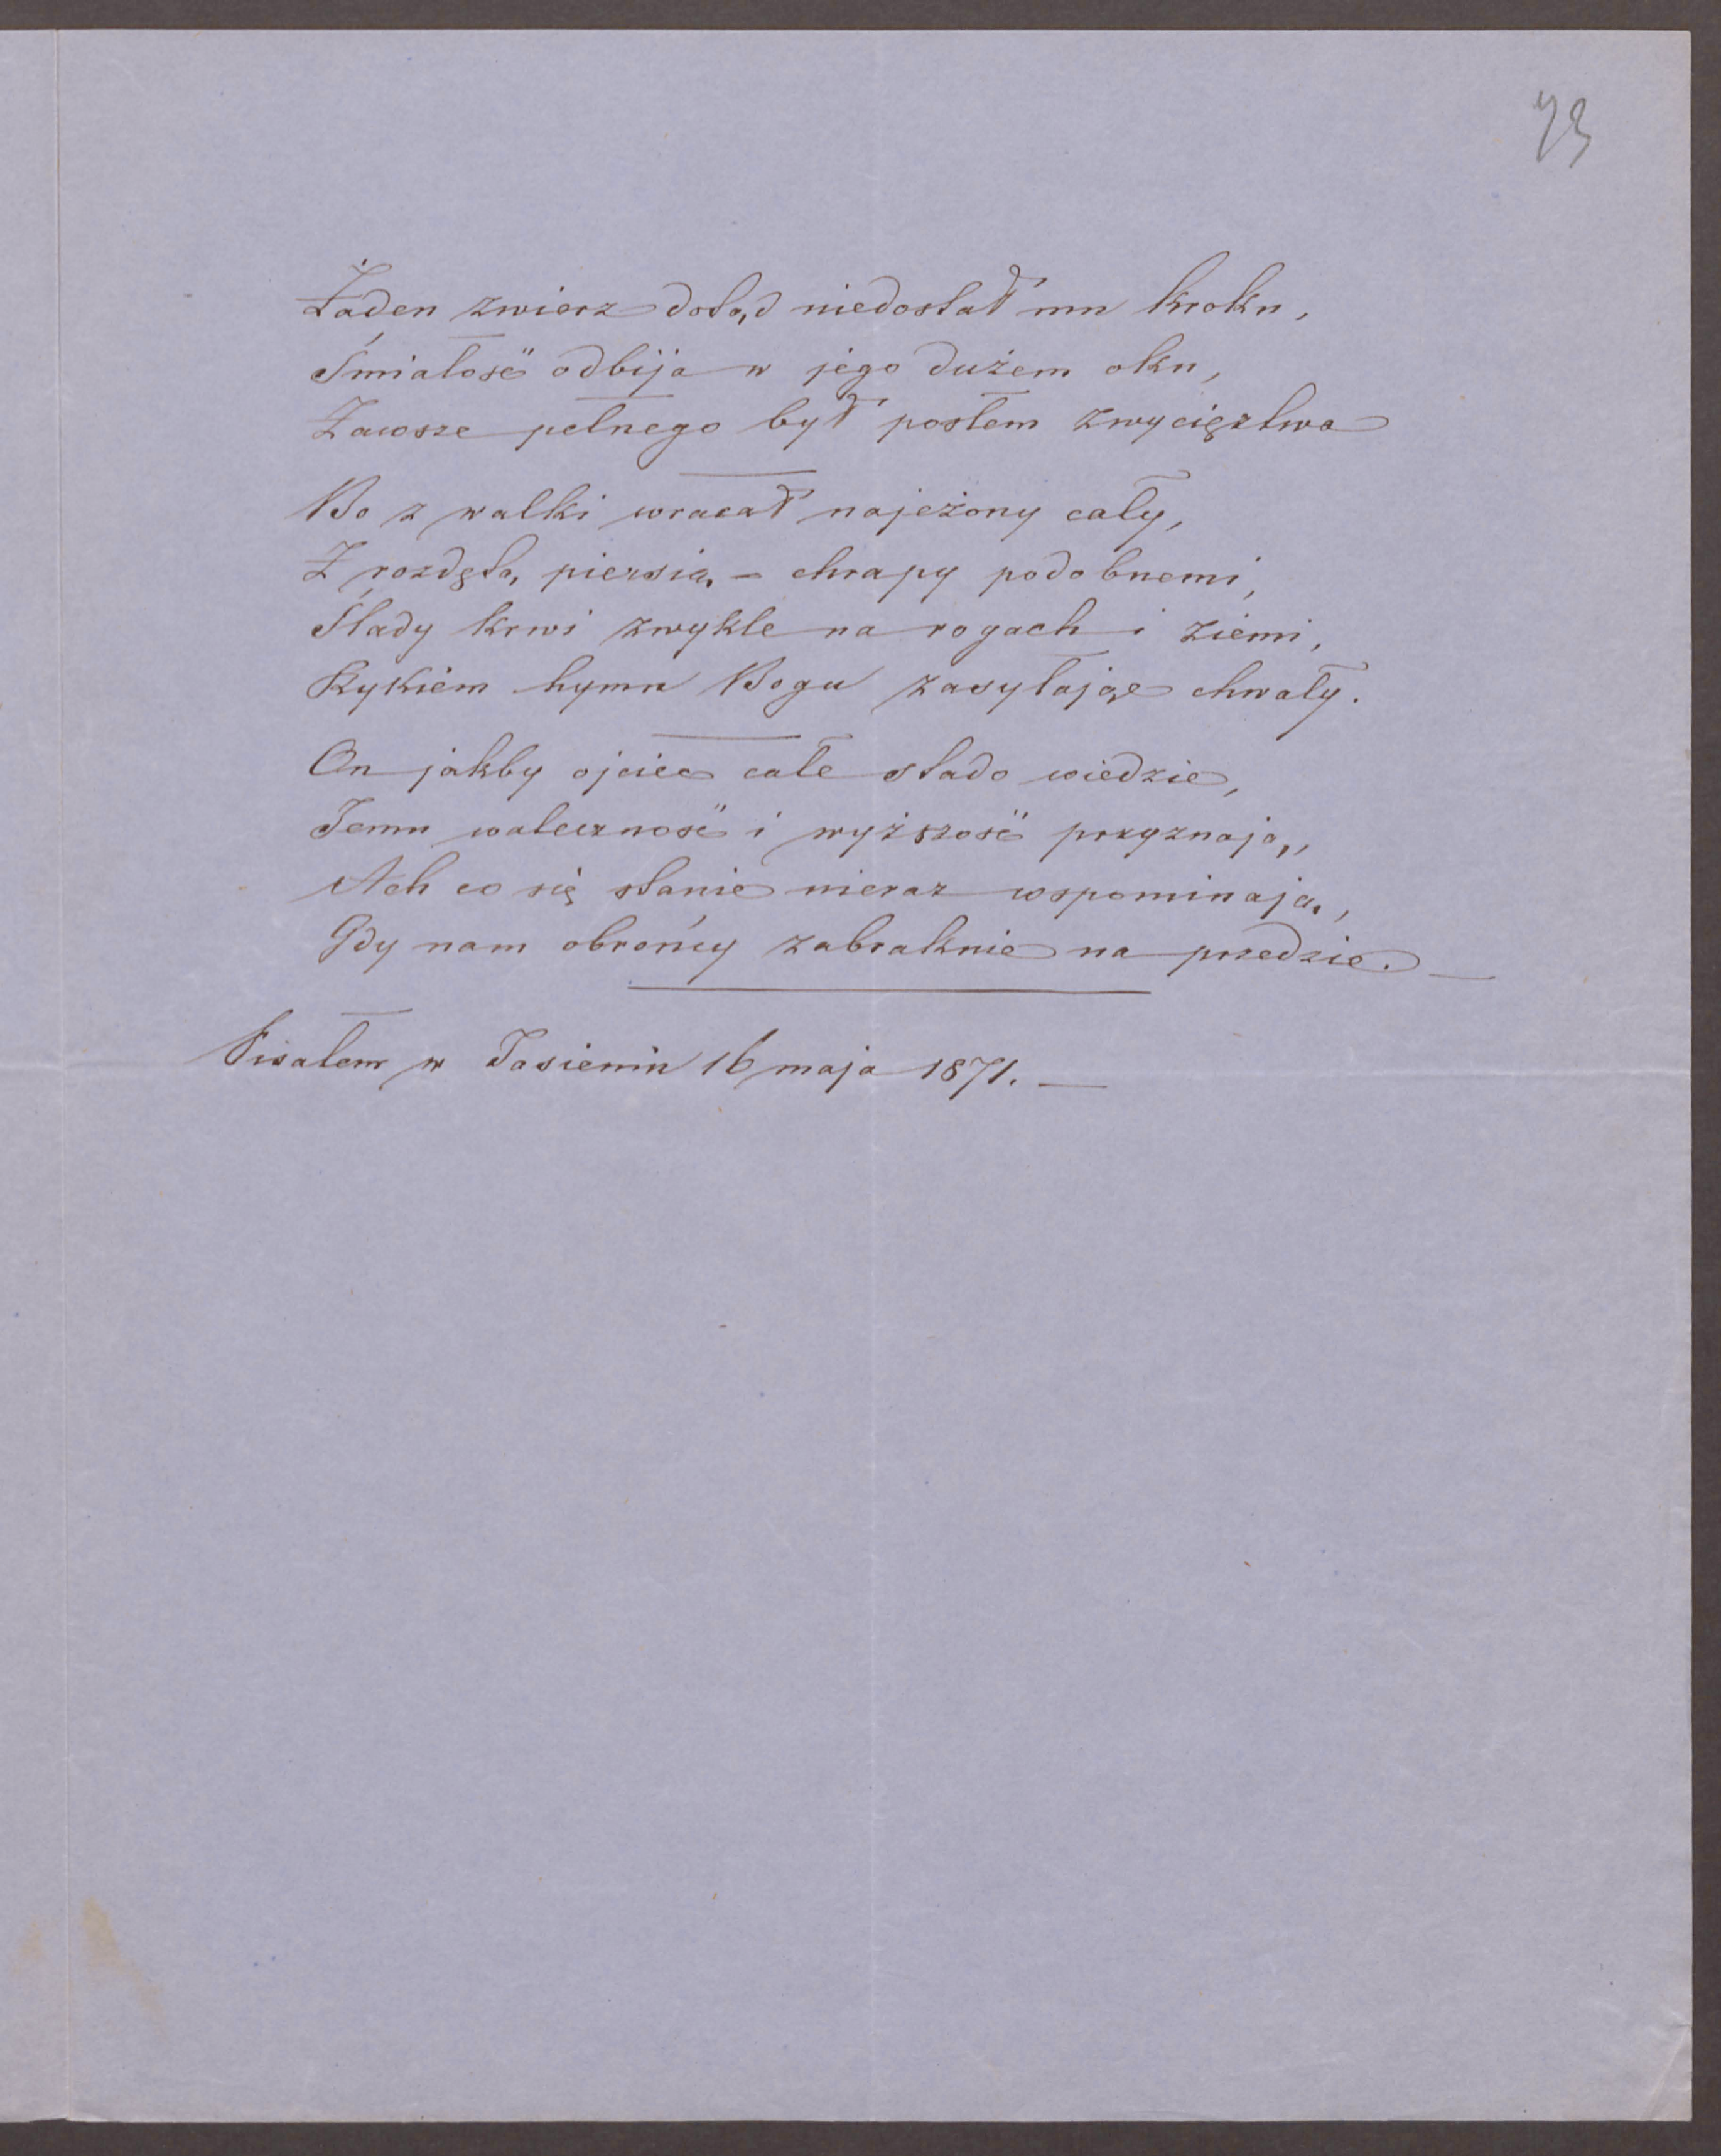 73
Żaden zwierz dotąd niedostał mu kroku,
Śmiałość odbija w jego dużem oku,
Zawsze pełnego był posłem zwycięztwa
Bo z walki wracał najeżony cały,
Z rozdętą piersią - chrapy podobnemi,
Ślady krwi zwykle na rogach i ziemi,
Rykiem hymn Bogu zasyłając chwały.
On jakby ojciec całe stado wiedzie,
Temu waleczność i wyższość przyznają,
Ach co się stanie nieraz wspominają,
Gdy nam obrońcy zabraknie na przedzie. —
Pisałem w Jasieniu 16 maja 1871. —